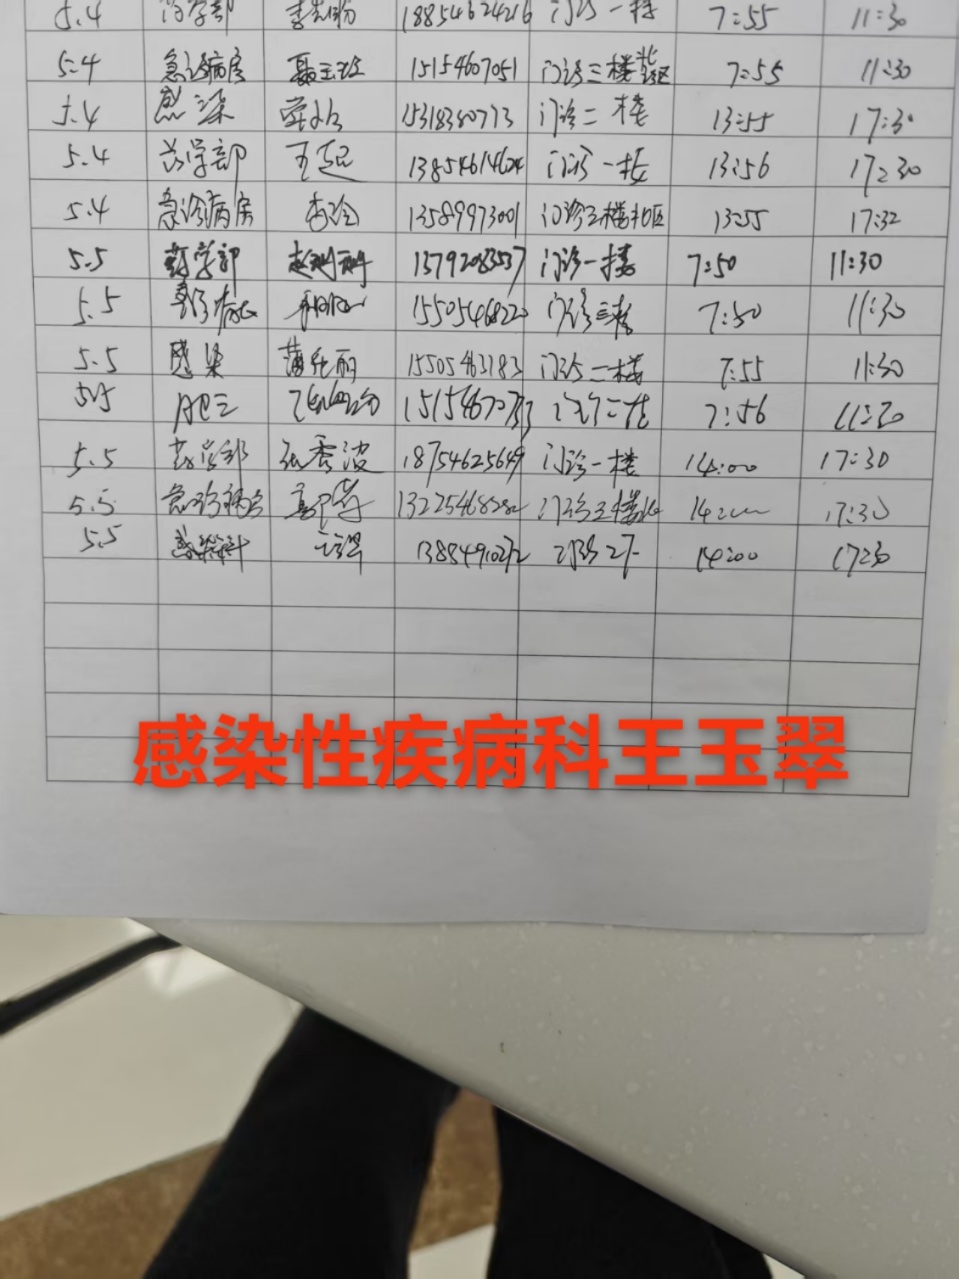 5.4 药学部 18854624216 门诊一楼 7:55 11:30
5.4 急诊病房 15154607051 门诊三楼北区 7:55 11:30
5.4 感染 15318380713 门诊二楼 13:55 17:30
5.4 药学部 王超 13854614624 门诊一楼 13:56 17:30
5.4 急诊病房 李玲 13589973001 门诊三楼北区 13:55 17:32
5.5 药学部 13792083537 门诊一楼 7:50 11:30
5.5 急诊病房 15505468220 门诊三楼 7:50 11:30
5.5 感染 薄纯丽 15505463183 门诊二楼 7:55 11:30
5.5 门诊二楼 7:56 11:30
5.5 药学部 张秀波 18754625649 门诊一楼 14:00 17:30
5.5 急诊病房 13225468282 门诊三楼北 14:00 17:30
5.5 感染科 13884910272 门诊2F 14:00 17:30
感染性疾病科王玉翠